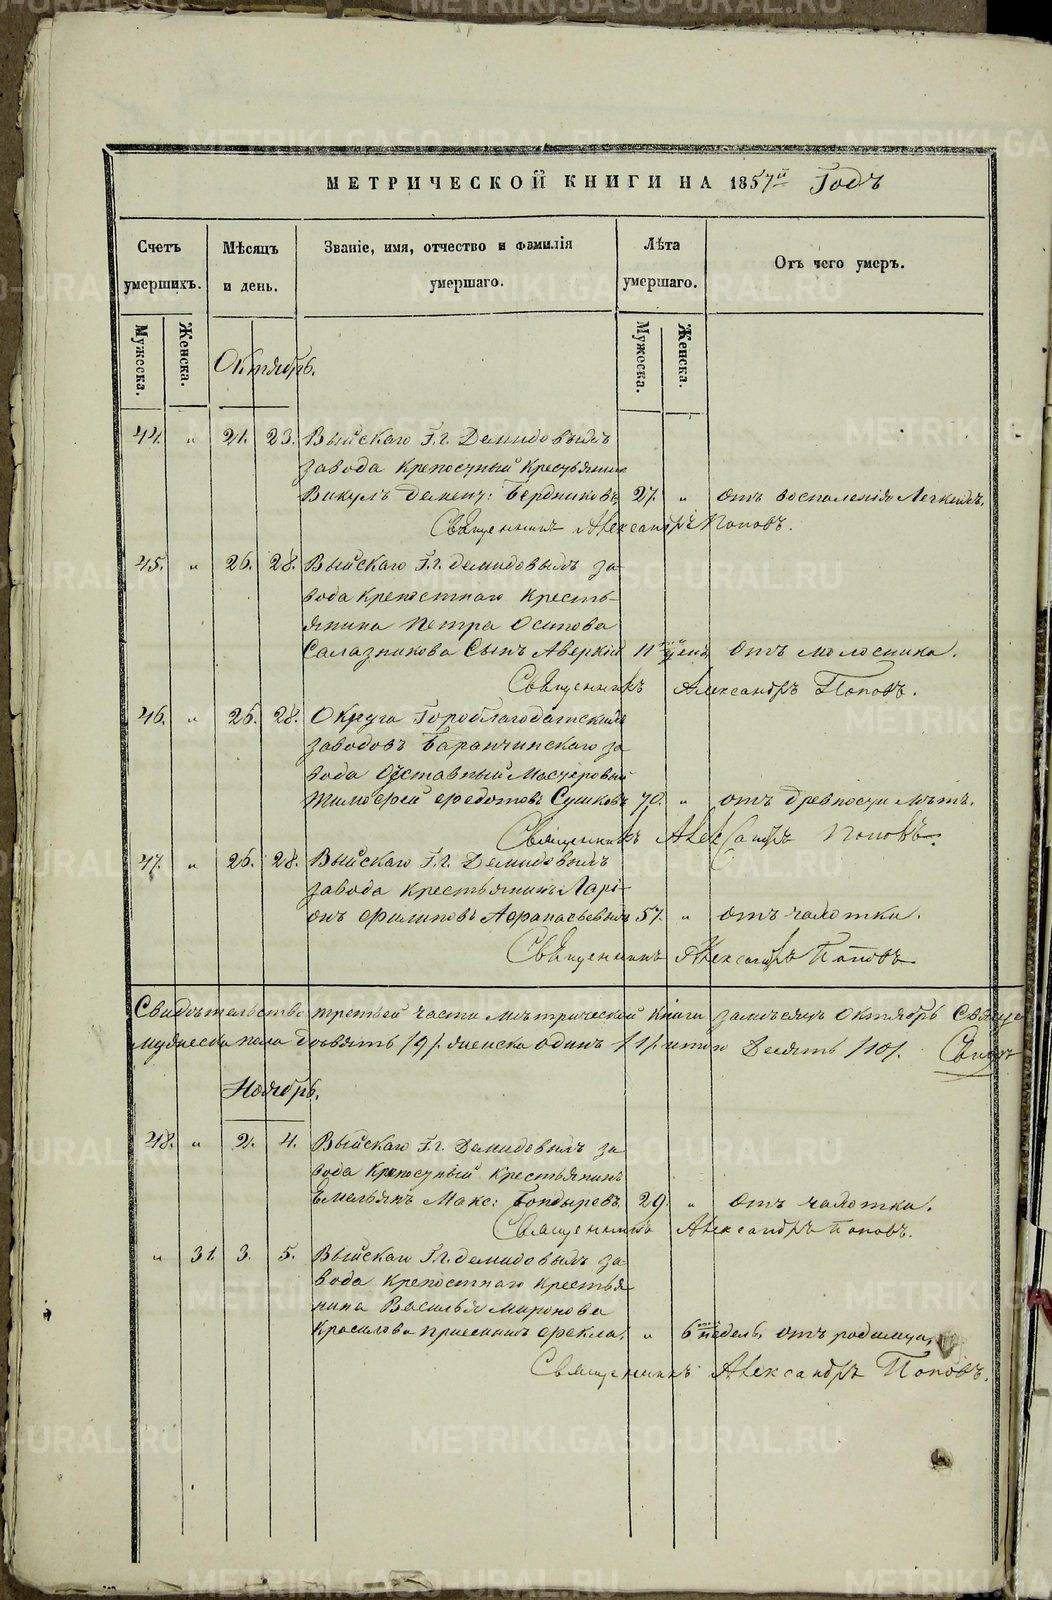 МЕТРИЧЕСКОЙ КНИГИ НА 1857й Годъ
Счетъ умершихъ.
Мѣсяцъ и день.
Званіе, имя, отчество и фамилія умершаго.
Лѣта умершаго.
Отъ чего умеръ.
Мужеска. Женска. Мужеска. Женска.
Октябрь.
44. " 21. 23. Выйскаго Г.г. Демидовыхъ
завода крепостный крестьянинъ
Викулъ Демент: Бердниковъ 27. " отъ воспаленія Легкихъ.
Священникъ Александръ Поповъ.
45. " 26. 28. Выйскаго Г.г. Демидовыхъ за-
вода крепостнаго кресть-
янина Петра Осипова
Салазникова Сынъ Аверкій 11 отъ молосника.
Священникъ Александръ Поповъ.
46. " 26. 28. Округа Гороблагодатскихъ
заводовъ Баранчинскаго за
вода Отставный Мастеровый
Тимофей Федотовъ Сушковъ 70. " отъ древности лѣтъ.
Священникъ Александръ Поповъ.
47. " 26. 28. Выйскаго Г.г. Демидовыхъ
завода крестьянинъ Ларі-
онъ Филиповъ Афанасьевыхъ 57. " отъ чахотки.
Священникъ Александръ Поповъ
Свидѣтельство третьей части метрической книги за мѣсяцъ Октябрь Свяще
мужеска пола девять /9/. женска одинъ /1/. итого Десять /10/.
Ноябрь.
48. " 2. 4. Выйскаго Г.г. Демидовыхъ за
вода крепостный крестьянинъ
Емельянъ Макс: Бондыревъ 29. " отъ чахотки.
Священникъ Александръ Поповъ.
" 31. 3. 5. Выйскаго Г.г. Демидовыхъ за-
вода крепостнаго крестья
нина Василья Миронова
Красилова приемышъ Фекла. " 6ти недель, отъ родимца.
Священникъ Александръ Поповъ.
METRIKI.GASO-URAL.RU